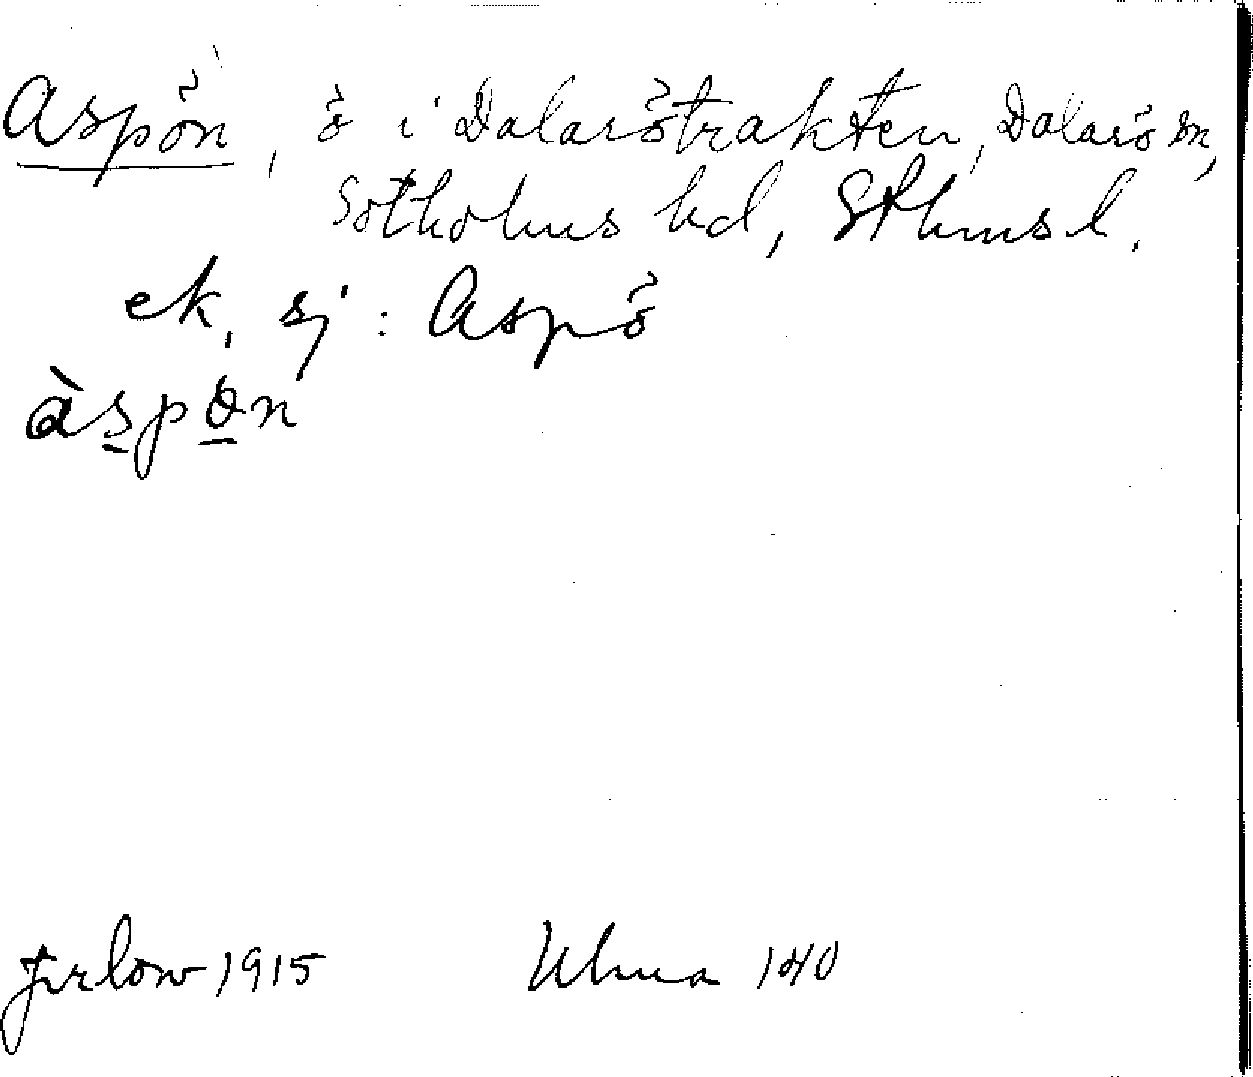 Aspön, ö i Dalarötrakten, Dalarö sn,
Sotholms hd, Sthms l.
ek, sj: Aspö
àspön
Jirlow 1915 Ulma 140